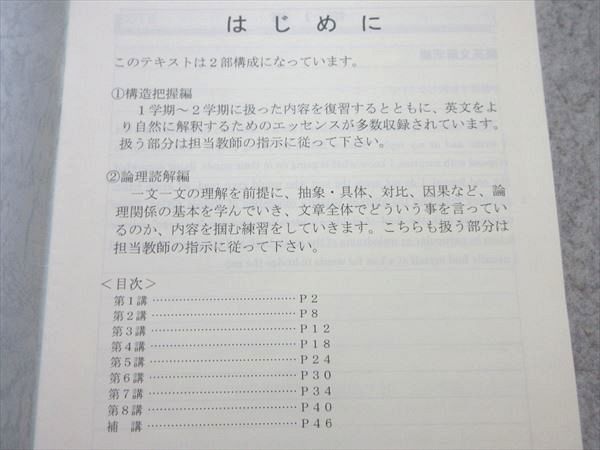 はじめに
このテキストは２部構成になっています。
①構造把握編
１学期～２学期に扱った内容を復習するとともに、英文をよ
り自然に解釈するためのエッセンスが多数収録されています。
扱う部分は担当教師の指示に従って下さい。
②論理読解編
一文一文の理解を前提に、抽象・具体、対比、因果など、論
理関係の基本を学んでいき、文章全体でどういう事を言ってい
るのか、内容を掴む練習をしていきます。こちらも扱う部分は
担当教師の指示に従って下さい。
＜目次＞
第１講 ……………………………………Ｐ２
第２講 ……………………………………Ｐ８
第３講 ……………………………………Ｐ１２
第４講 ……………………………………Ｐ１８
第５講 ……………………………………Ｐ２４
第６講 ……………………………………Ｐ３０
第７講 ……………………………………Ｐ３４
第８講 ……………………………………Ｐ４０
補　講 ……………………………………Ｐ４６